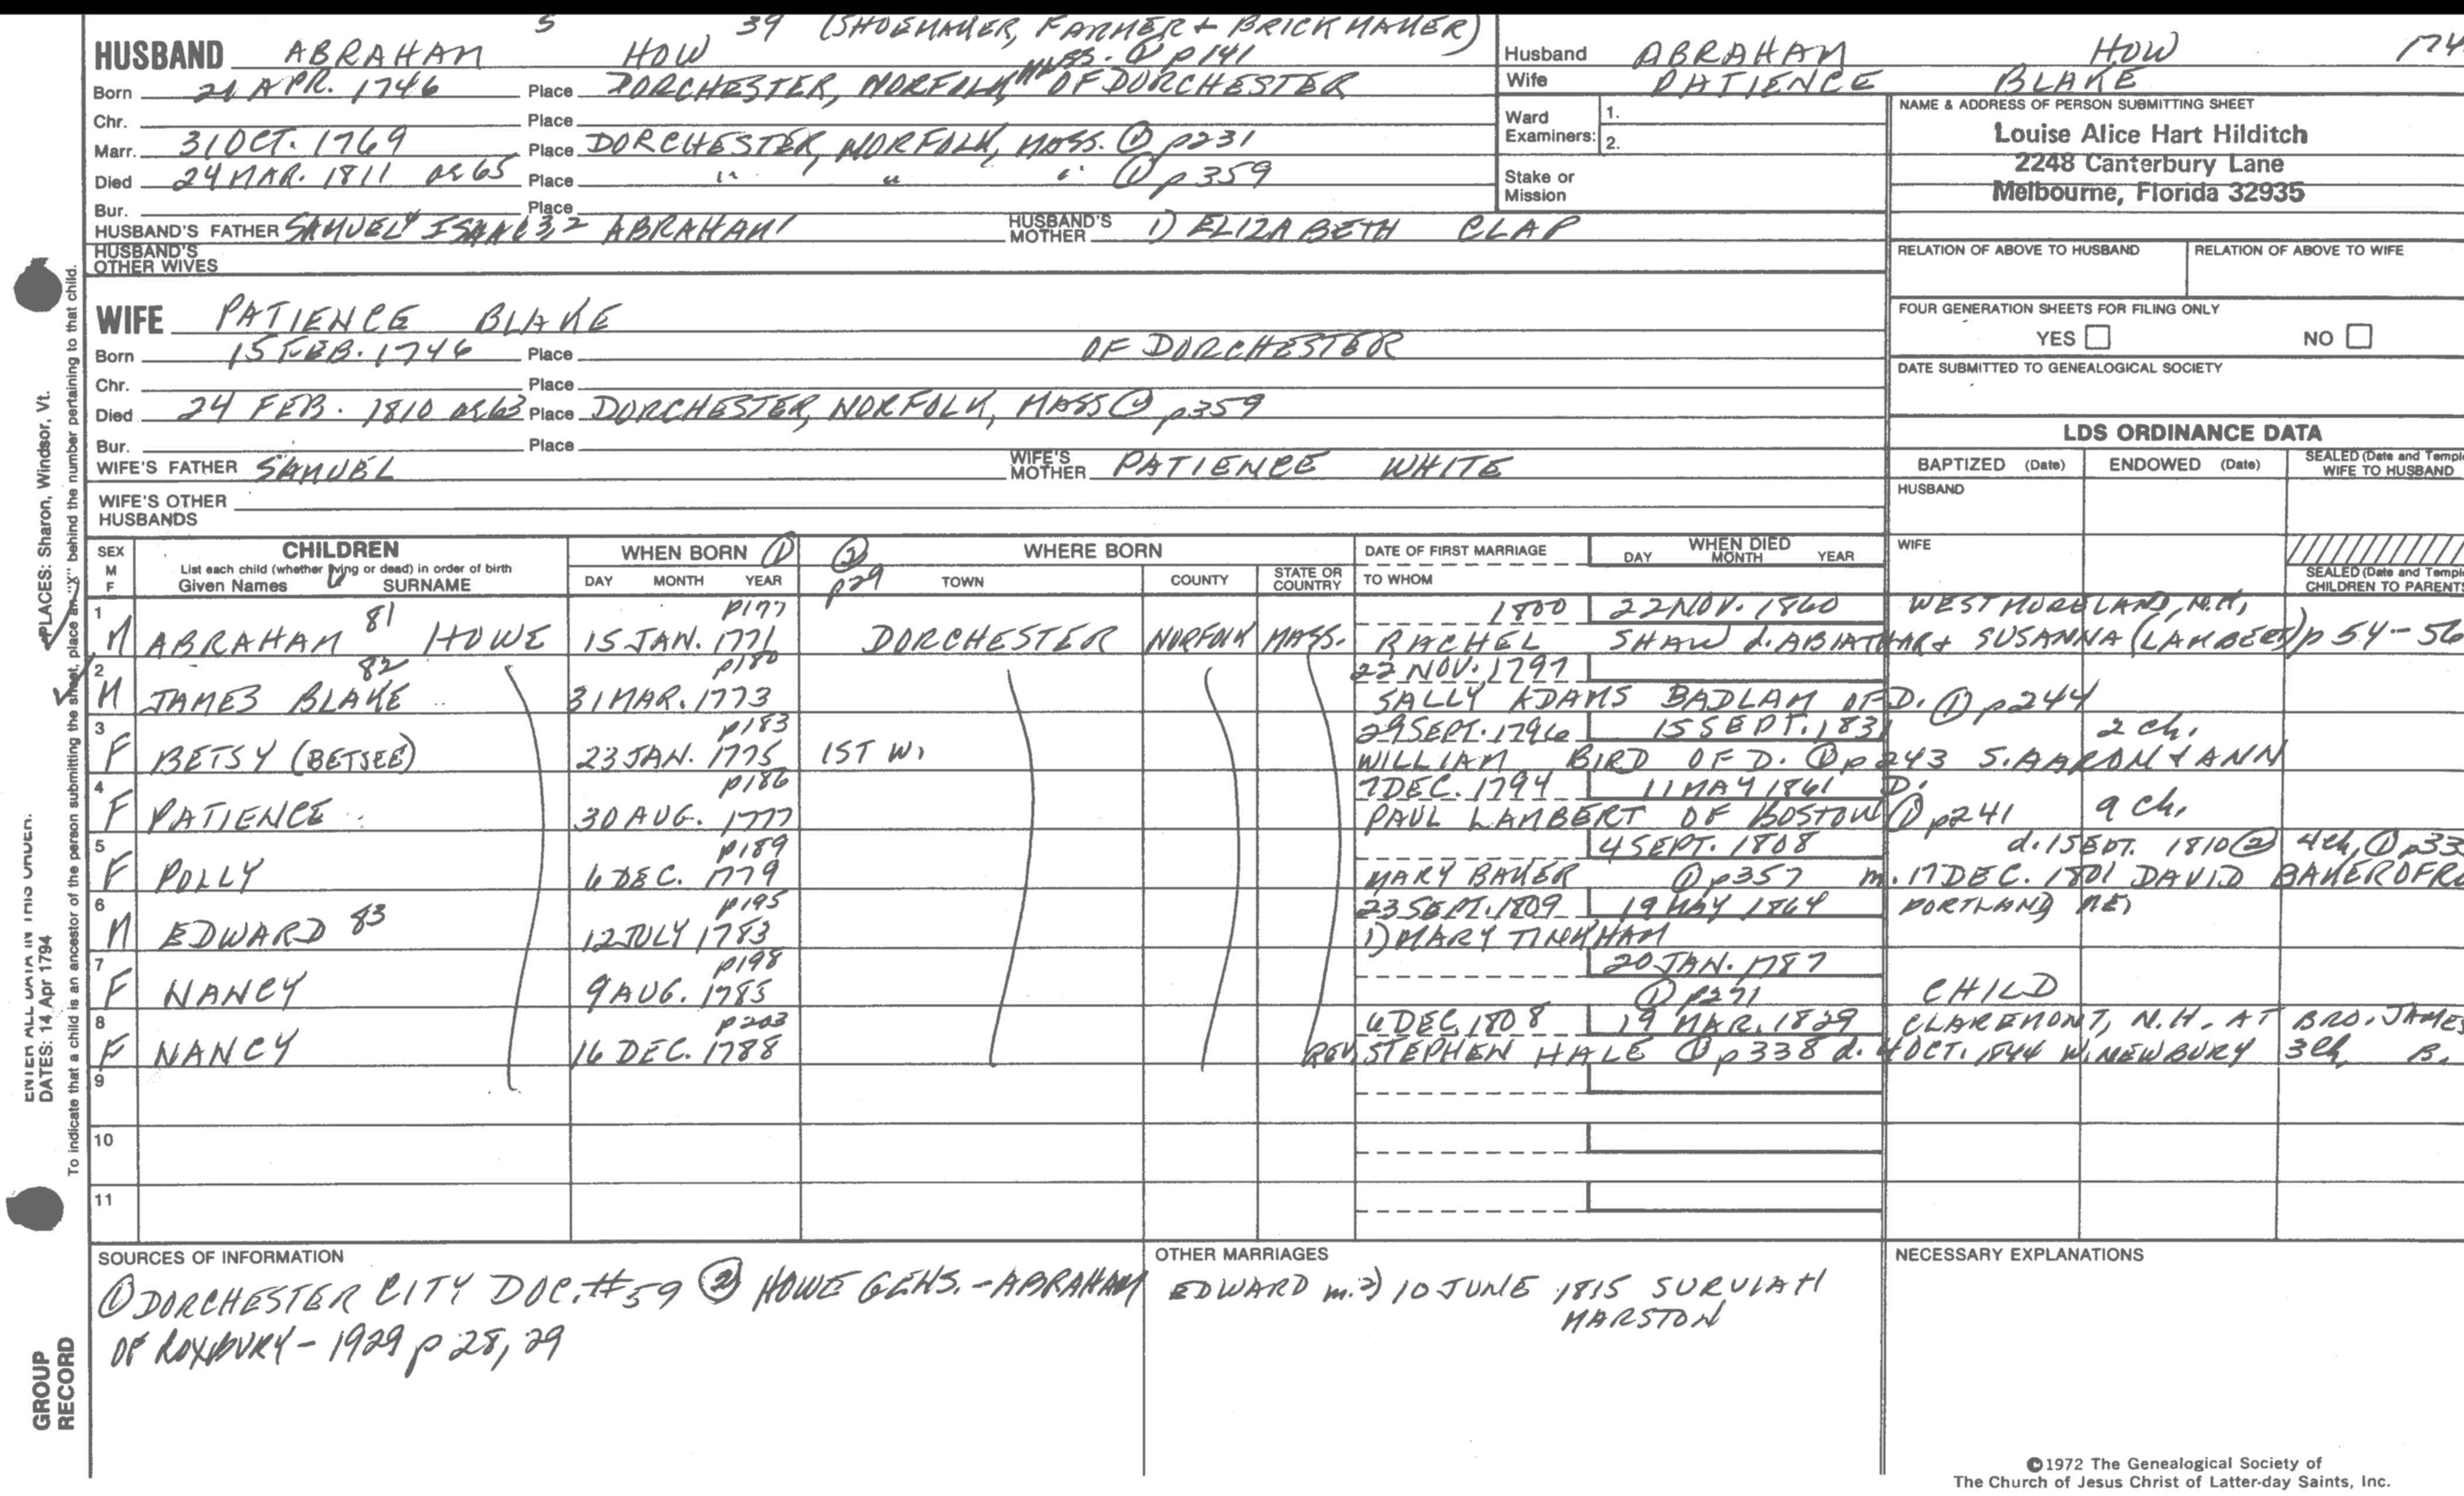 5 39 (SHOEMAKER, FARMER + BRICK MAKER)
HUSBAND ABRAHAM HOW MASS. ① p141
Born 21 APR. 1746 Place DORCHESTER, NORFOLK, OF DORCHESTER
Chr. Place
Marr. 31 OCT. 1769 Place DORCHESTER, NORFOLK, MASS. ① p231
Died 24 MAR. 1811 ae 65 Place " " " ① p359
Bur. Place
HUSBAND'S FATHER SAMUEL4 ISAAC3,2 ABRAHAM1 HUSBAND'S MOTHER 1) ELIZABETH CLAP
HUSBAND'S OTHER WIVES
Husband ABRAHAM HOW 174
Wife PATIENCE BLAKE
Ward Examiners: 1.
2.
Stake or Mission
NAME & ADDRESS OF PERSON SUBMITTING SHEET
Louise Alice Hart Hilditch
2248 Canterbury Lane
Melbourne, Florida 32935
RELATION OF ABOVE TO HUSBAND RELATION OF ABOVE TO WIFE
FOUR GENERATION SHEETS FOR FILING ONLY
YES NO
DATE SUBMITTED TO GENEALOGICAL SOCIETY
WIFE PATIENCE BLAKE
Born 15 FEB. 1746 Place OF DORCHESTER
Chr. Place
Died 24 FEB. 1810 ae 63 Place DORCHESTER, NORFOLK, MASS ① p359
Bur. Place
WIFE'S FATHER SAMUEL WIFE'S MOTHER PATIENCE WHITE
WIFE'S OTHER HUSBANDS
LDS ORDINANCE DATA
BAPTIZED (Date) ENDOWED (Date) SEALED (Date and Temple
WIFE TO HUSBAND
HUSBAND
WIFE
SEALED (Date and Temple
CHILDREN TO PARENTS
SEX M F CHILDREN WHEN BORN ① ② p29 WHERE BORN DATE OF FIRST MARRIAGE WHEN DIED
List each child (whether living or dead) in order of birth
Given Names SURNAME DAY MONTH YEAR TOWN COUNTY STATE OR COUNTRY TO WHOM DAY MONTH YEAR
1 p177 1800 22 NOV. 1860 WESTMORELAND, N.H.
M ABRAHAM 81 HOWE 15 JAN. 1771 DORCHESTER NORFOLK MASS. RACHEL SHAW d. ABIATHAR + SUSANNA (LAMBERT) p 54-56
2 82 p180 22 NOV. 1797
M JAMES BLAKE 31 MAR. 1773 SALLY ADAMS BADLAM OF D. ① p244
3 p183 29 SEPT. 1796 15 SEPT. 1831 2 ch.
F BETSY (BETSEE) 23 JAN. 1775 1ST W. WILLIAM BIRD OF D. ① p243 S. AARON + ANN
4 p186 7 DEC. 1794 11 MAY 1861 D.
F PATIENCE 30 AUG. 1777 PAUL LAMBERT OF BOSTON ① p241 9 ch.
5 p189 4 SEPT. 1808 d. 15 SEPT. 1810 ② 4 ch, ① p33
F POLLY 6 DEC. 1779 MARY BAKER ① p357 m. 17 DEC. 1801 DAVID BAKER OF RO
6 p195 23 SEPT. 1809 19 MAY 1864 PORTLAND, ME.
M EDWARD 83 12 JULY 1783 1) MARY TINKHAM
7 p198 20 JAN. 1787
F NANCY 9 AUG. 1785 ① p271 CHILD
8 p203 6 DEC. 1808 19 MAR. 1829 CLAREMONT, N.H. AT BRO. JAMES
F NANCY 16 DEC. 1788 REV. STEPHEN HALE ① p338 d. 4 OCT. 1844 W. NEWBURY 3 ch B.
9
10
11
SOURCES OF INFORMATION
① DORCHESTER CITY DOC. #59 ② HOWE GENS. - ABRAHAM
OF ROXBURY - 1929 p 28, 29
OTHER MARRIAGES
EDWARD m. 2) 10 JUNE 1815 SURVIAH
MARSTON
NECESSARY EXPLANATIONS
©1972 The Genealogical Society of
The Church of Jesus Christ of Latter-day Saints, Inc.
PLACES: Sharon, Windsor, Vt.
ENTER ALL DATA IN THIS ORDER:
DATES: 14 Apr 1794
To indicate that a child is an ancestor of the person submitting the sheet, place an "X" behind the number pertaining to that child.
GROUP
RECORD